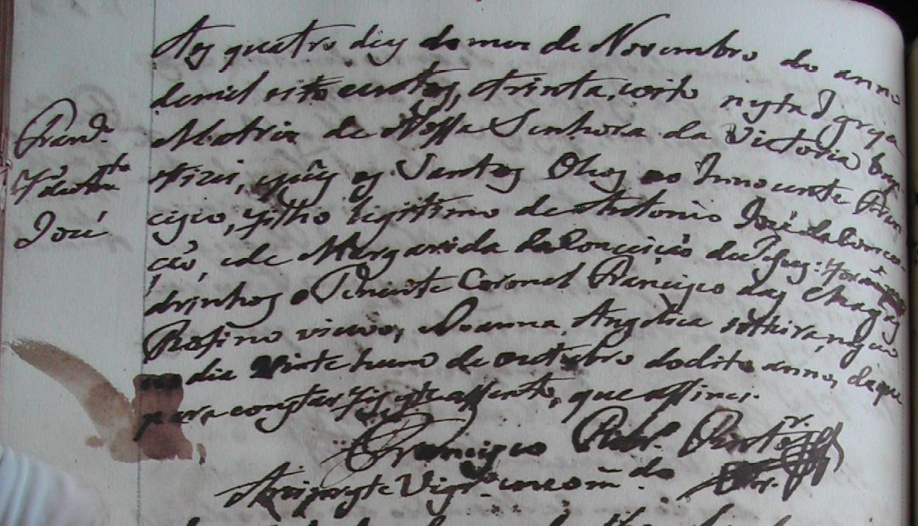 Aos quatro dias do mes de Novembro do anno
de mil oito centos, e trinta, e oito nesta Igreja
Matriz de Nossa Senhora da Victoria bap
Fran.co
tizei, e puz os Santos Oleos ao Innocente Fran
F.o de Anto
cisco, filho legitimo de Antonio José da Concei
José
ção, e de Margarida da Conceição desta Freg.: forão Pa
drinhos o Tenente Coronel Francisco das Chagas
Rofino viuvo, e Joanna Angelica solteira, nasceo
dia Vinte hum de outubro do dito anno, de que
para constar fiz este assento, que assinei.
Francisco
Arcipreste Vig.ro encom.do